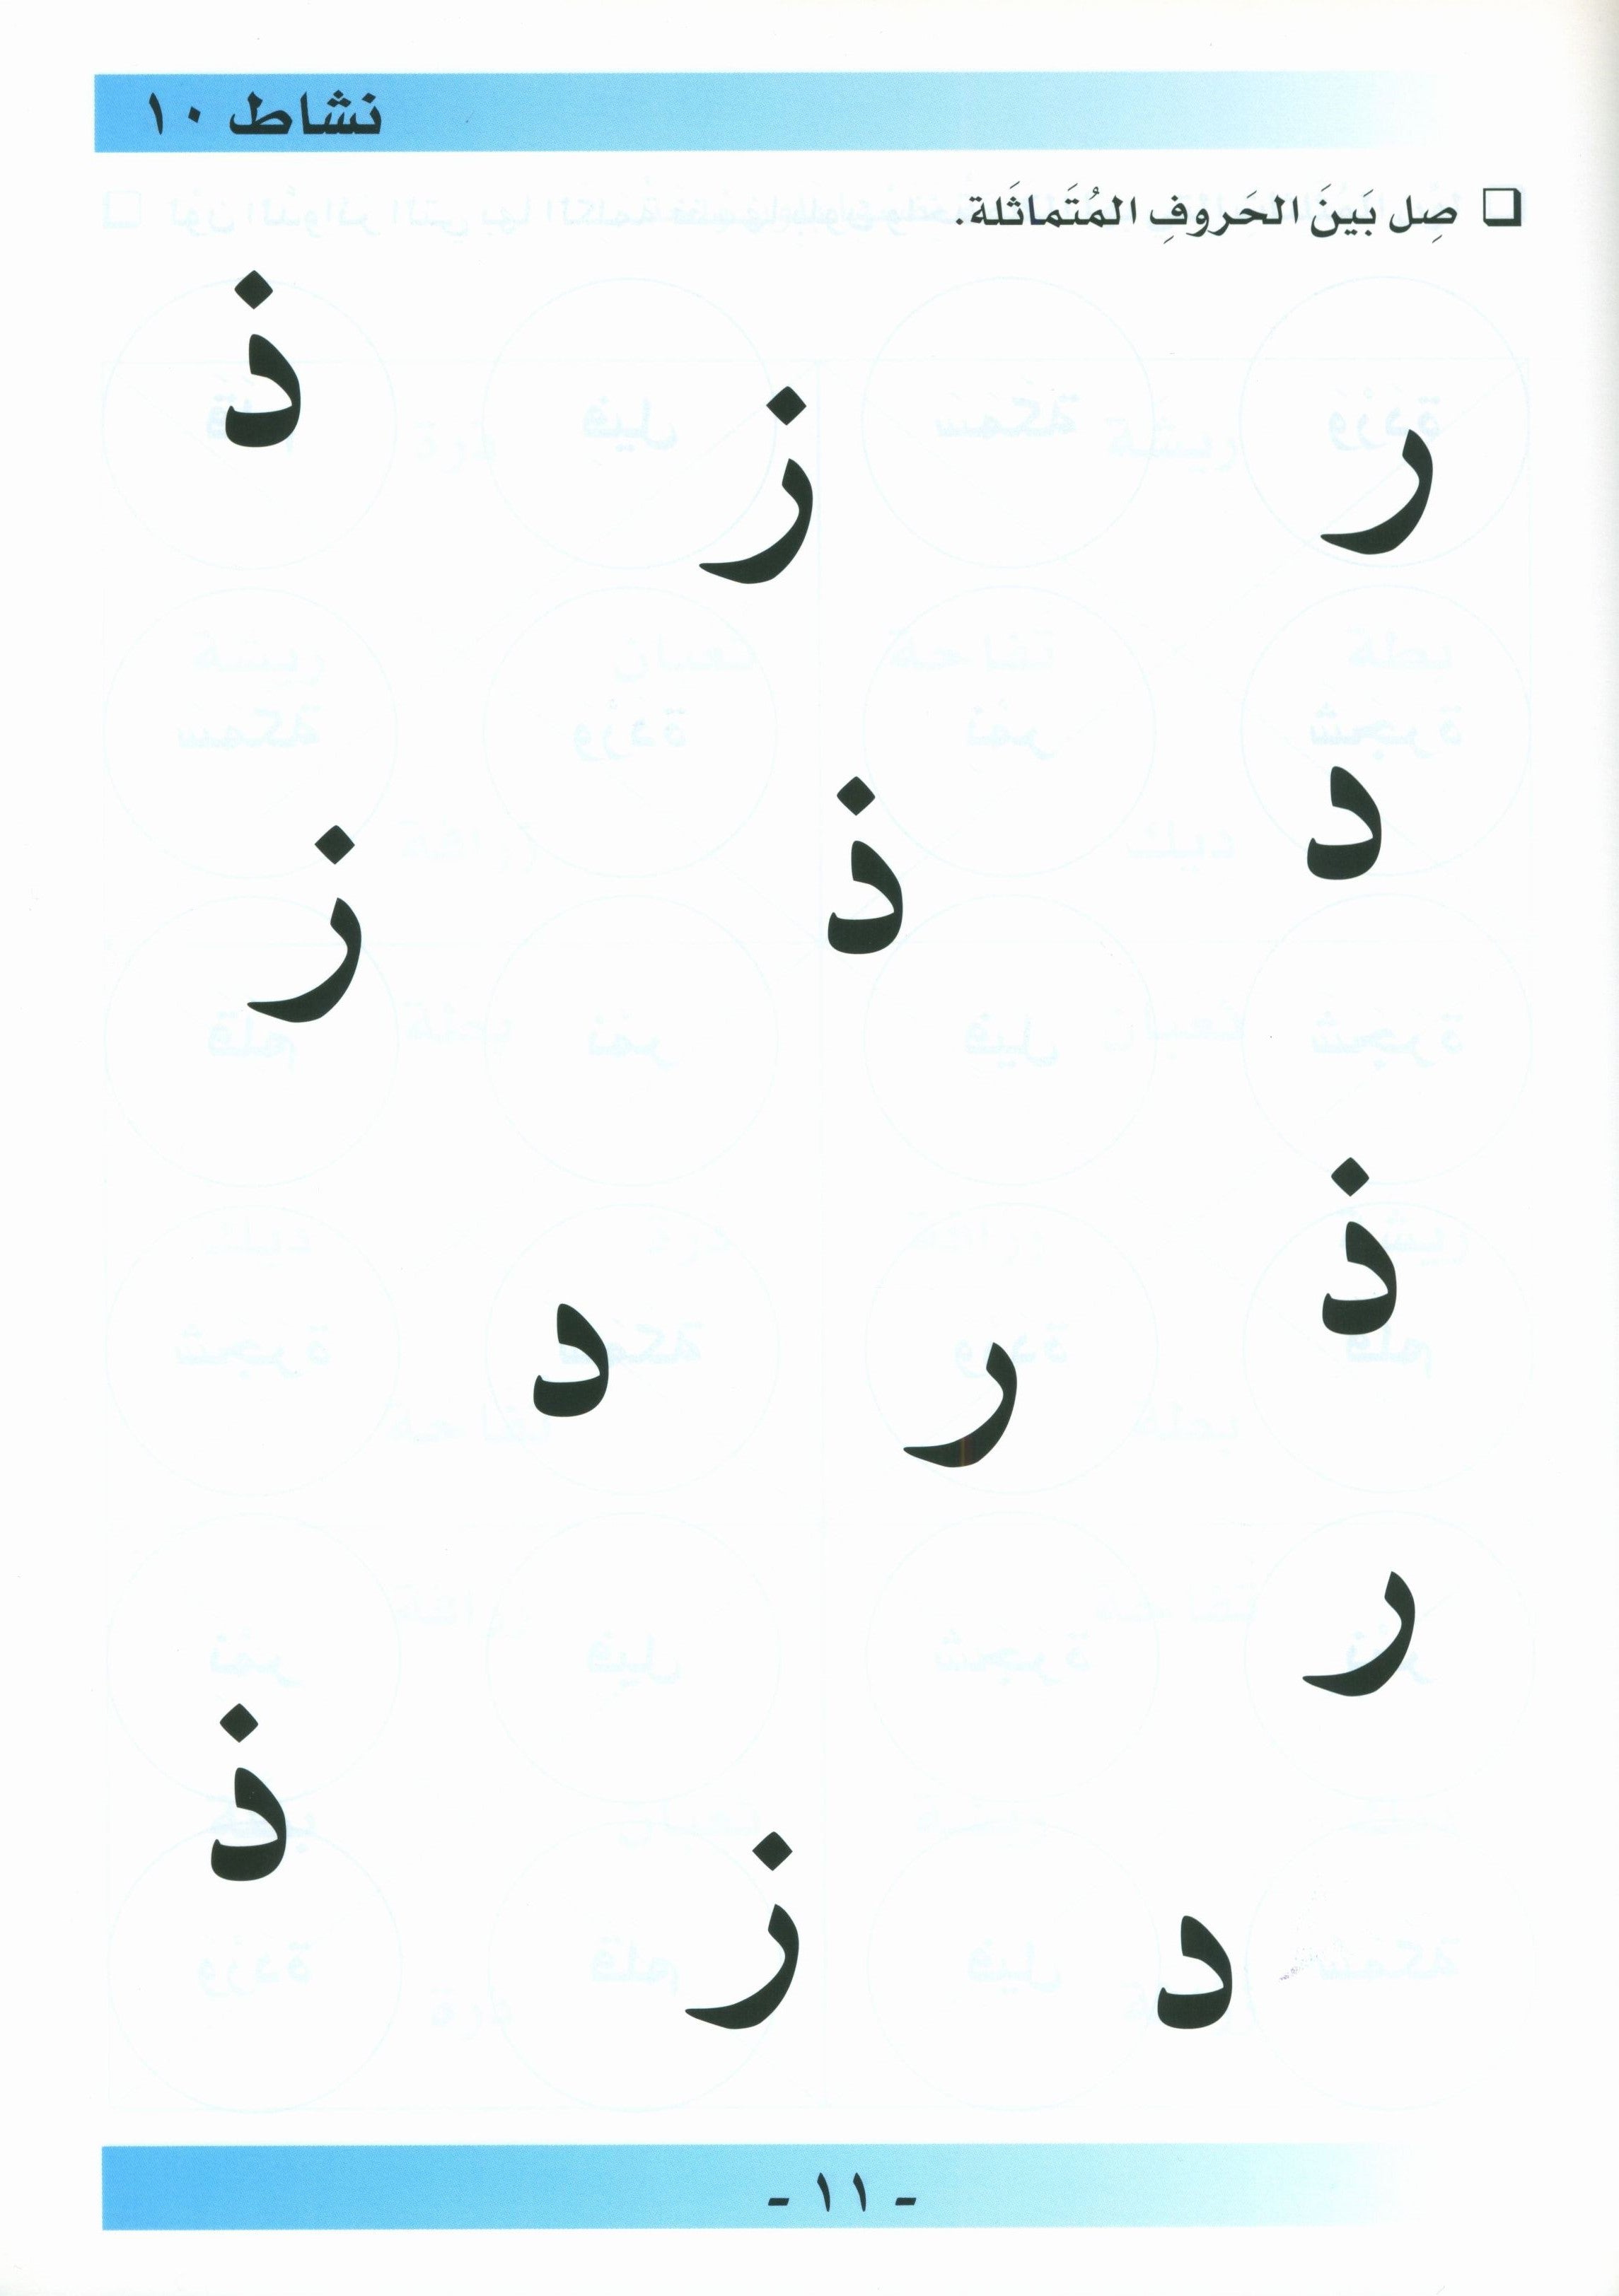 نشاط ١٠
❑ صِل بَينَ الحَروفِ المُتَماثَلة.
ذ
ر ز
د ذ ز
ذ
ر د
ر
ذ
د ز
- ١١ -